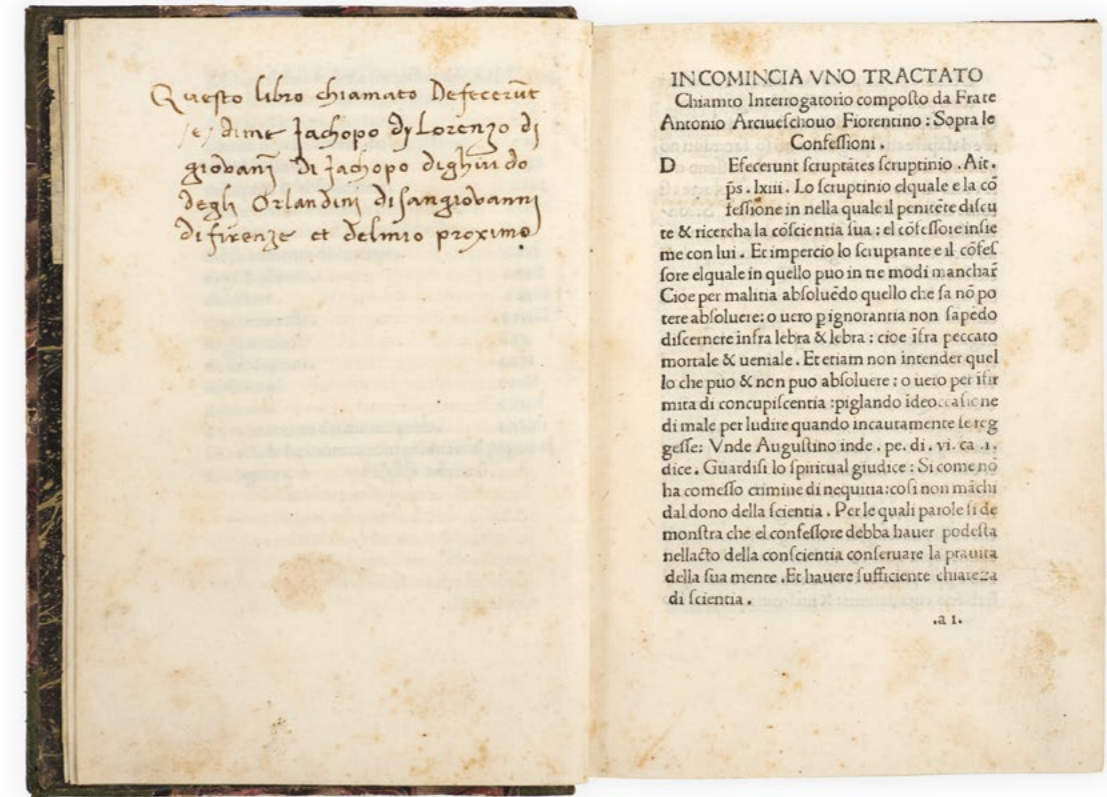 Questo libro chiamato Defecerūt
/e/ dime Jachopo dy Lorenzo di
giovanj Di Jachopo dighuido
degli Orlandini Disangiovannj
difirenze et delmio proximo
INCOMINCIA VNO TRACTATO
Chiamto Interrogatorio compoſto da Frate
Antonio Arciueſchouo Fiorentino : Sopra le
Confeſſioni .
D Efecerunt ſcruptātes ſcruptinio . Ait .
p̄s . lxiii . Lo ſcruptinio elquale e la cō
feſſione in nella quale il penitēte diſcu
te & ricercha la cōſcientia ſua : el cōfeſſore inſie
me con lui . Et impercio lo ſcruptante e il cōfeſ
ſore elquale in quello puo in tre modi manchar̄
Cioe per malitia abſoluēdo quello che ſa nō po
tere abſoluere: o uero ꝑ ignorantia non ſapēdo
diſcernere infra lebra & lebra : cioe īfra peccato
mortale & ueniale . Et etiam non intender quel
lo che puo & non puo abſoluere : o uero per īfir
mita di concupiſcentia :piglando ideoccaſione
di male per ludire quando incautamente ſe reg
geſſe: Vnde Auguſtino inde . pe. di . vi. ca .1.
dice . Guardiſi lo ſpiritual giudice : Si come no
ha comeſſo crimine di nequitia:coſi non māchi
dal dono della ſcientia . Per le quali parole ſi de
monſtra che el confeſſore debba hauer podeſta
nellacto della conſcientia conſeruare la prauita
della ſua mente .Et hauere ſufficiente chiareza
di ſcientia .
.a 1.